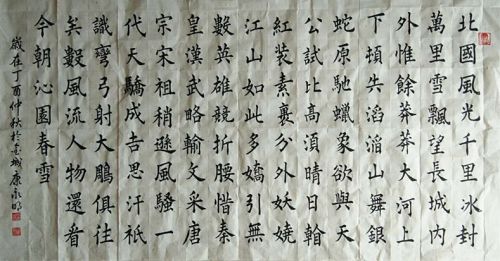 北國風光千里冰封
萬里雪飄望長城內
外惟餘莽莽大河上
下頓失滔滔山舞銀
蛇原馳蠟象欲與天
公試比高須晴日
紅装素裹分外妖嬈
江山如此多嬌引無
數英雄競折腰惜秦
皇漢武略輸文采唐
宗宋祖稍遜風騷一
代天驕成吉思汗祇
識彎弓射大鵰俱往
矣數風流人物還看
今朝沁園春雪
歲在丁酉仲秋於城康永明